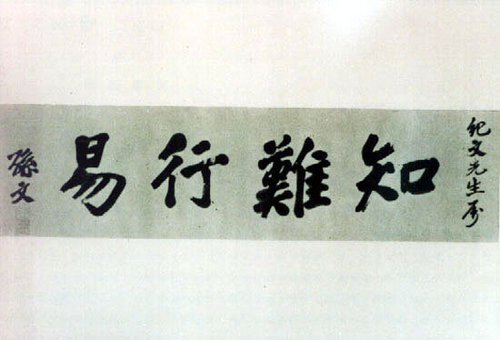 紀文先生屬
知難行易
孫文